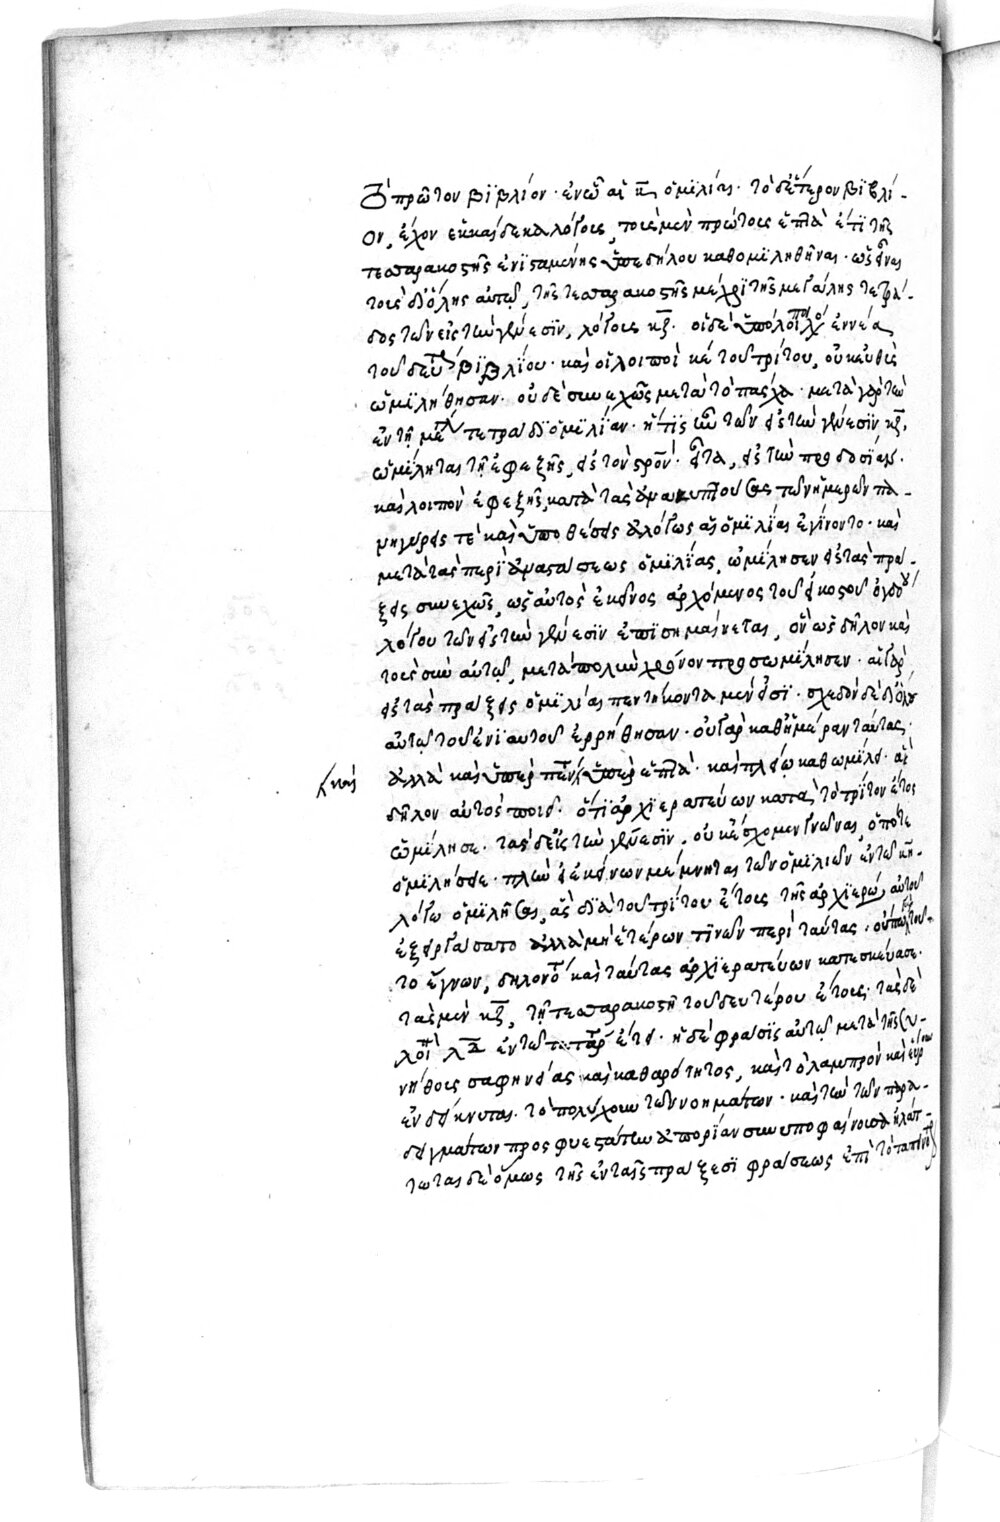 Τὸ πρῶτον βϊβλίον· ἐν ὧ αἱ κ̅ ὁμιλίαι· τὸ δεύτερον βϊβλί-
ον, ἔχον ἑκκαίδεκα λόγους, τοὺς μὲν πρώτους ἑπτὰ ἐπὶ τῆς
τεσσαρακοστῆς ἐνϊσταμένης ὑπεδήλου καθομιληθῆναι· ὡς εἶναι
τοὺς δϊόλης αὐτῶ, τῆς τεσσαρακοστῆς μέχρι τῆς μεγάλης τετρά-
δος τῶν εἰς τὴν γένεσϊν, λόγους κζ̅· οἱ δὲ ὑπόλοιποι ἐννέα
τοῦ δευτέρου βϊβλΐου· καὶ οἱ λοιποὶ καὶ τοῦ τρίτου, οὐκ εὐθὺς
ὡμϊλήθησαν· οὐδὲ συνεχῶς μετὰ τὸ πάσχα· μετὰ γὰρ τὴν
ἐν τῆ μεγάλη τετράδϊ ὁμιλΐαν· ἥτϊς ἦν τῶν εἰς τὴν γένεσϊν κζ̅,
ὡμίλησε τῆ ἐφεξῆς, εἰς τὸν σταυρόν· εἶτα, εἰς τὴν προδοσΐαν·
καὶ λοιπὸν ἐφεξῆς, κατὰ τὰς ἀνακυπτούσας τῶν ἡμερῶν πα-
νηγύρεις τὲ καὶ ὑποθέσεις ἀλόγως αἱ ὁμιλΐαι ἐγΐνοντο· καὶ
μετὰ τὰς περὶ ἀναστάσεως ὁμιλίας, ὡμίλησεν εἰς τὰς πρά-
ξεις συνεχῶς, ὡς αὐτὸς ἐκεῖνος ἀρχόμενος τοῦ εἰκοστοῦ ὀγδόου
λόγου τῶν εἰς τὴν γένεσϊν ἐπϊσημαίνεται,
τοὺς σὺν αὐτῶ, μετὰ πολὺν χρόνον προσωμίλησεν· αἱ γὰρ
εἰς τὰς πράξεις ὁμϊλίαι πεντήκοντα μὲν εἰσΐ· σχεδὸν δὲ δϊόλου
αὐτῶ τοῦ ἐνϊαυτοῦ ἐρρήθησαν· οὐ γὰρ καθημέραν ταύτας·
ἀλλὰ καὶ ὑπὲρ πέντε καὶ ὑπὲρ ἑπτὰ· καὶ πλείω καθωμίλει· ἃς
δῆλον αὐτὸς ποιεῖ· ὅτϊ ἀρχϊερατεύων κατὰ τὸ τρίτον ἔτος
ὡμίλησε· τὰς δὲ εἰς τὴν γένεσϊν, οὐκ ἔσχομεν γνῶναι, ὁπότε
ὁμιλήσειε· πλὴν ἐξ ἐκείνων μέμνηται τῶν ὁμιλιῶν ἐν τῶ κη-
λόγω ὁμιλῆσαι, ἃς δϊὰ τοῦ τρίτου ἔτους τῆς ἀρχϊερωσύνης αὐτοῦ
ἐξειργάσατο ἀλλὰ μὴ ἑτέρων τϊνῶν περὶ ταύτας·
το ἔγνων, δηλονότι καὶ ταύτας ἀρχϊερατεύων κατεσκεύασε·
τὰς μὲν κζ̅, τῆ τεσσαρακοστῆ τοῦ δευτέρου ἔτους· τὰς δὲ
λοιπὰς λδ̅ ἐν τῶ τετάρτω ἔτει· ἡ δὲ φράσϊς αὐτῶ μετὰ τῆς συ-
νήθους σαφηνείας καὶ καθαρότητος, καὶ τὸ λαμπρὸν καὶ εὔρουν
ἐνδείκνυται· τὸ πολύχουν τῶν νοημάτων· καὶ τὴν τῶν παρα-
δειγμάτων προσφυεστάτην ἀπορίαν συνυποφαίνουσα ἡλάτ-
τωται δὲ ὅμως τῆς ἐν ταῖς πράξεσϊ φράσεως ἐπὶ τὸ ταπεινὸν